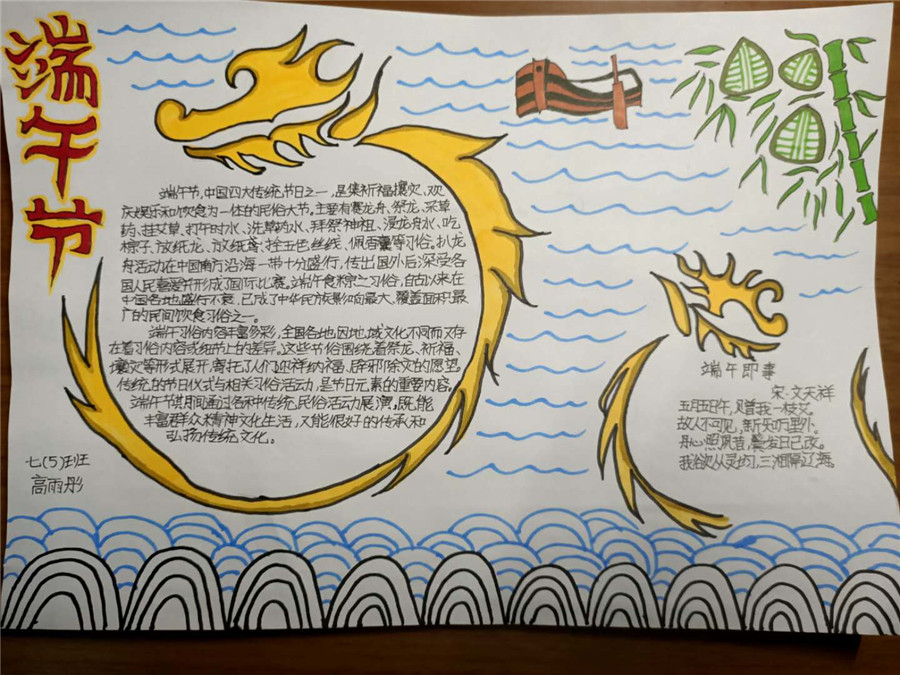 端午节
端午节,中国四大传统节日之一,是集祈福攘灾、欢
庆娱乐和饮食为一体的民俗大节。主要有赛龙舟、祭龙、采草
药、挂艾草、打午时水、洗草药水、拜祭神祖、浸龙舟水、吃
粽子、放纸龙、放纸鸢、拴五色丝线、佩香囊等习俗。扒龙
舟活动在中国南方沿海一带十分盛行,传出国外后深受各
国人民喜爱并形成了国际比赛。端午食粽之习俗,自古以来在
中国各地盛行不衰,已成了中华民族影响最大、覆盖面积最
广的民间饮食习俗之一。
端午习俗内容丰富多彩,全国各地因地域文化不同而又存
在着习俗内容或细节上的差异。这些节俗围绕着祭龙、祈福、
攘灾等形式展开,寄托了人们迎祥纳福、辟邪除灾的愿望。
传统的节日仪式与相关习俗活动,是节日元素的重要内容。
端午节期间通过各种传统民俗活动展演,既能
丰富群众精神文化生活,又能很好的传承和
弘扬传统文化。
七(5)班
高雨彤
端午即事
宋·文天祥
五月五日午,赠我一枝艾。
故人不可见,新知万里外。
丹心照夙昔,鬓发日已改。
我欲从灵均,三湘隔辽海。